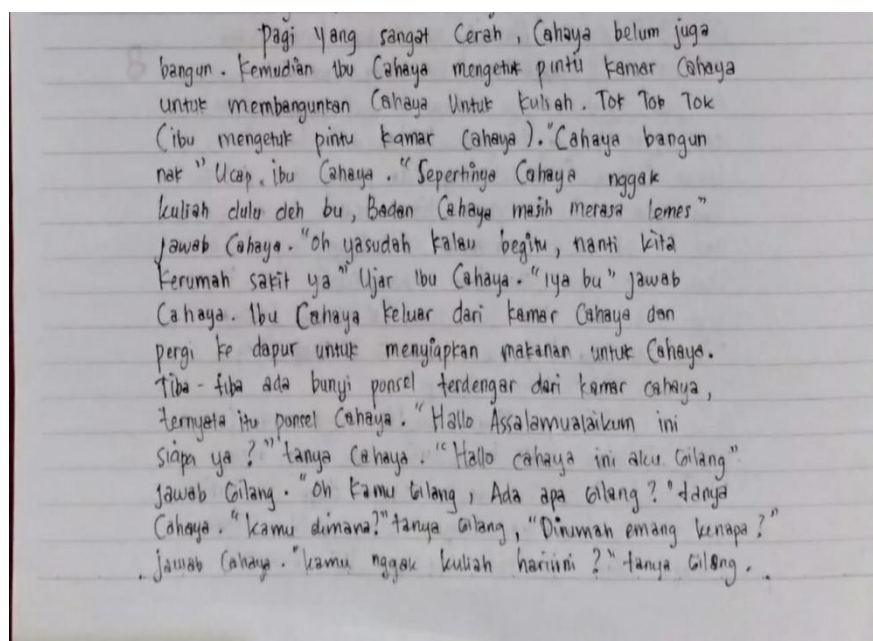 Pagi yang sangat Cerah, Cahaya belum juga
bangun. Kemudian ibu Cahaya mengetuk pintu kamar Cahaya
untuk membangunkan Cahaya Untuk kuliah. Tok Tok Tok
(ibu mengetuk pintu kamar Cahaya). "Cahaya bangun
nak" Ucap. ibu Cahaya. "Sepertinya Cahaya nggak
kuliah dulu deh bu, Badan Cahaya masih merasa lemes"
jawab Cahaya. "Oh yasudah kalau begitu, nanti kita
kerumah sakit ya" Ujar Ibu Cahaya. "iya bu" jawab
Cahaya. Ibu Cahaya keluar dari kamar Cahaya dan
pergi ke dapur untuk menyiapkan makanan untuk Cahaya.
Tiba-tiba ada bunyi ponsel terdengar dari kamar cahaya,
ternyata itu ponsel Cahaya. "Hallo Assalamualaikum ini
siapa ya?" tanya Cahaya. "Hallo cahaya ini aku Gilang"
jawab Gilang. "Oh kamu Gilang, Ada apa Gilang?" tanya
Cahaya. "kamu dimana?" tanya Gilang, "Dirumah emang kenapa?"
jawab Cahaya. "kamu nggak kuliah hariini?" tanya Gilang.